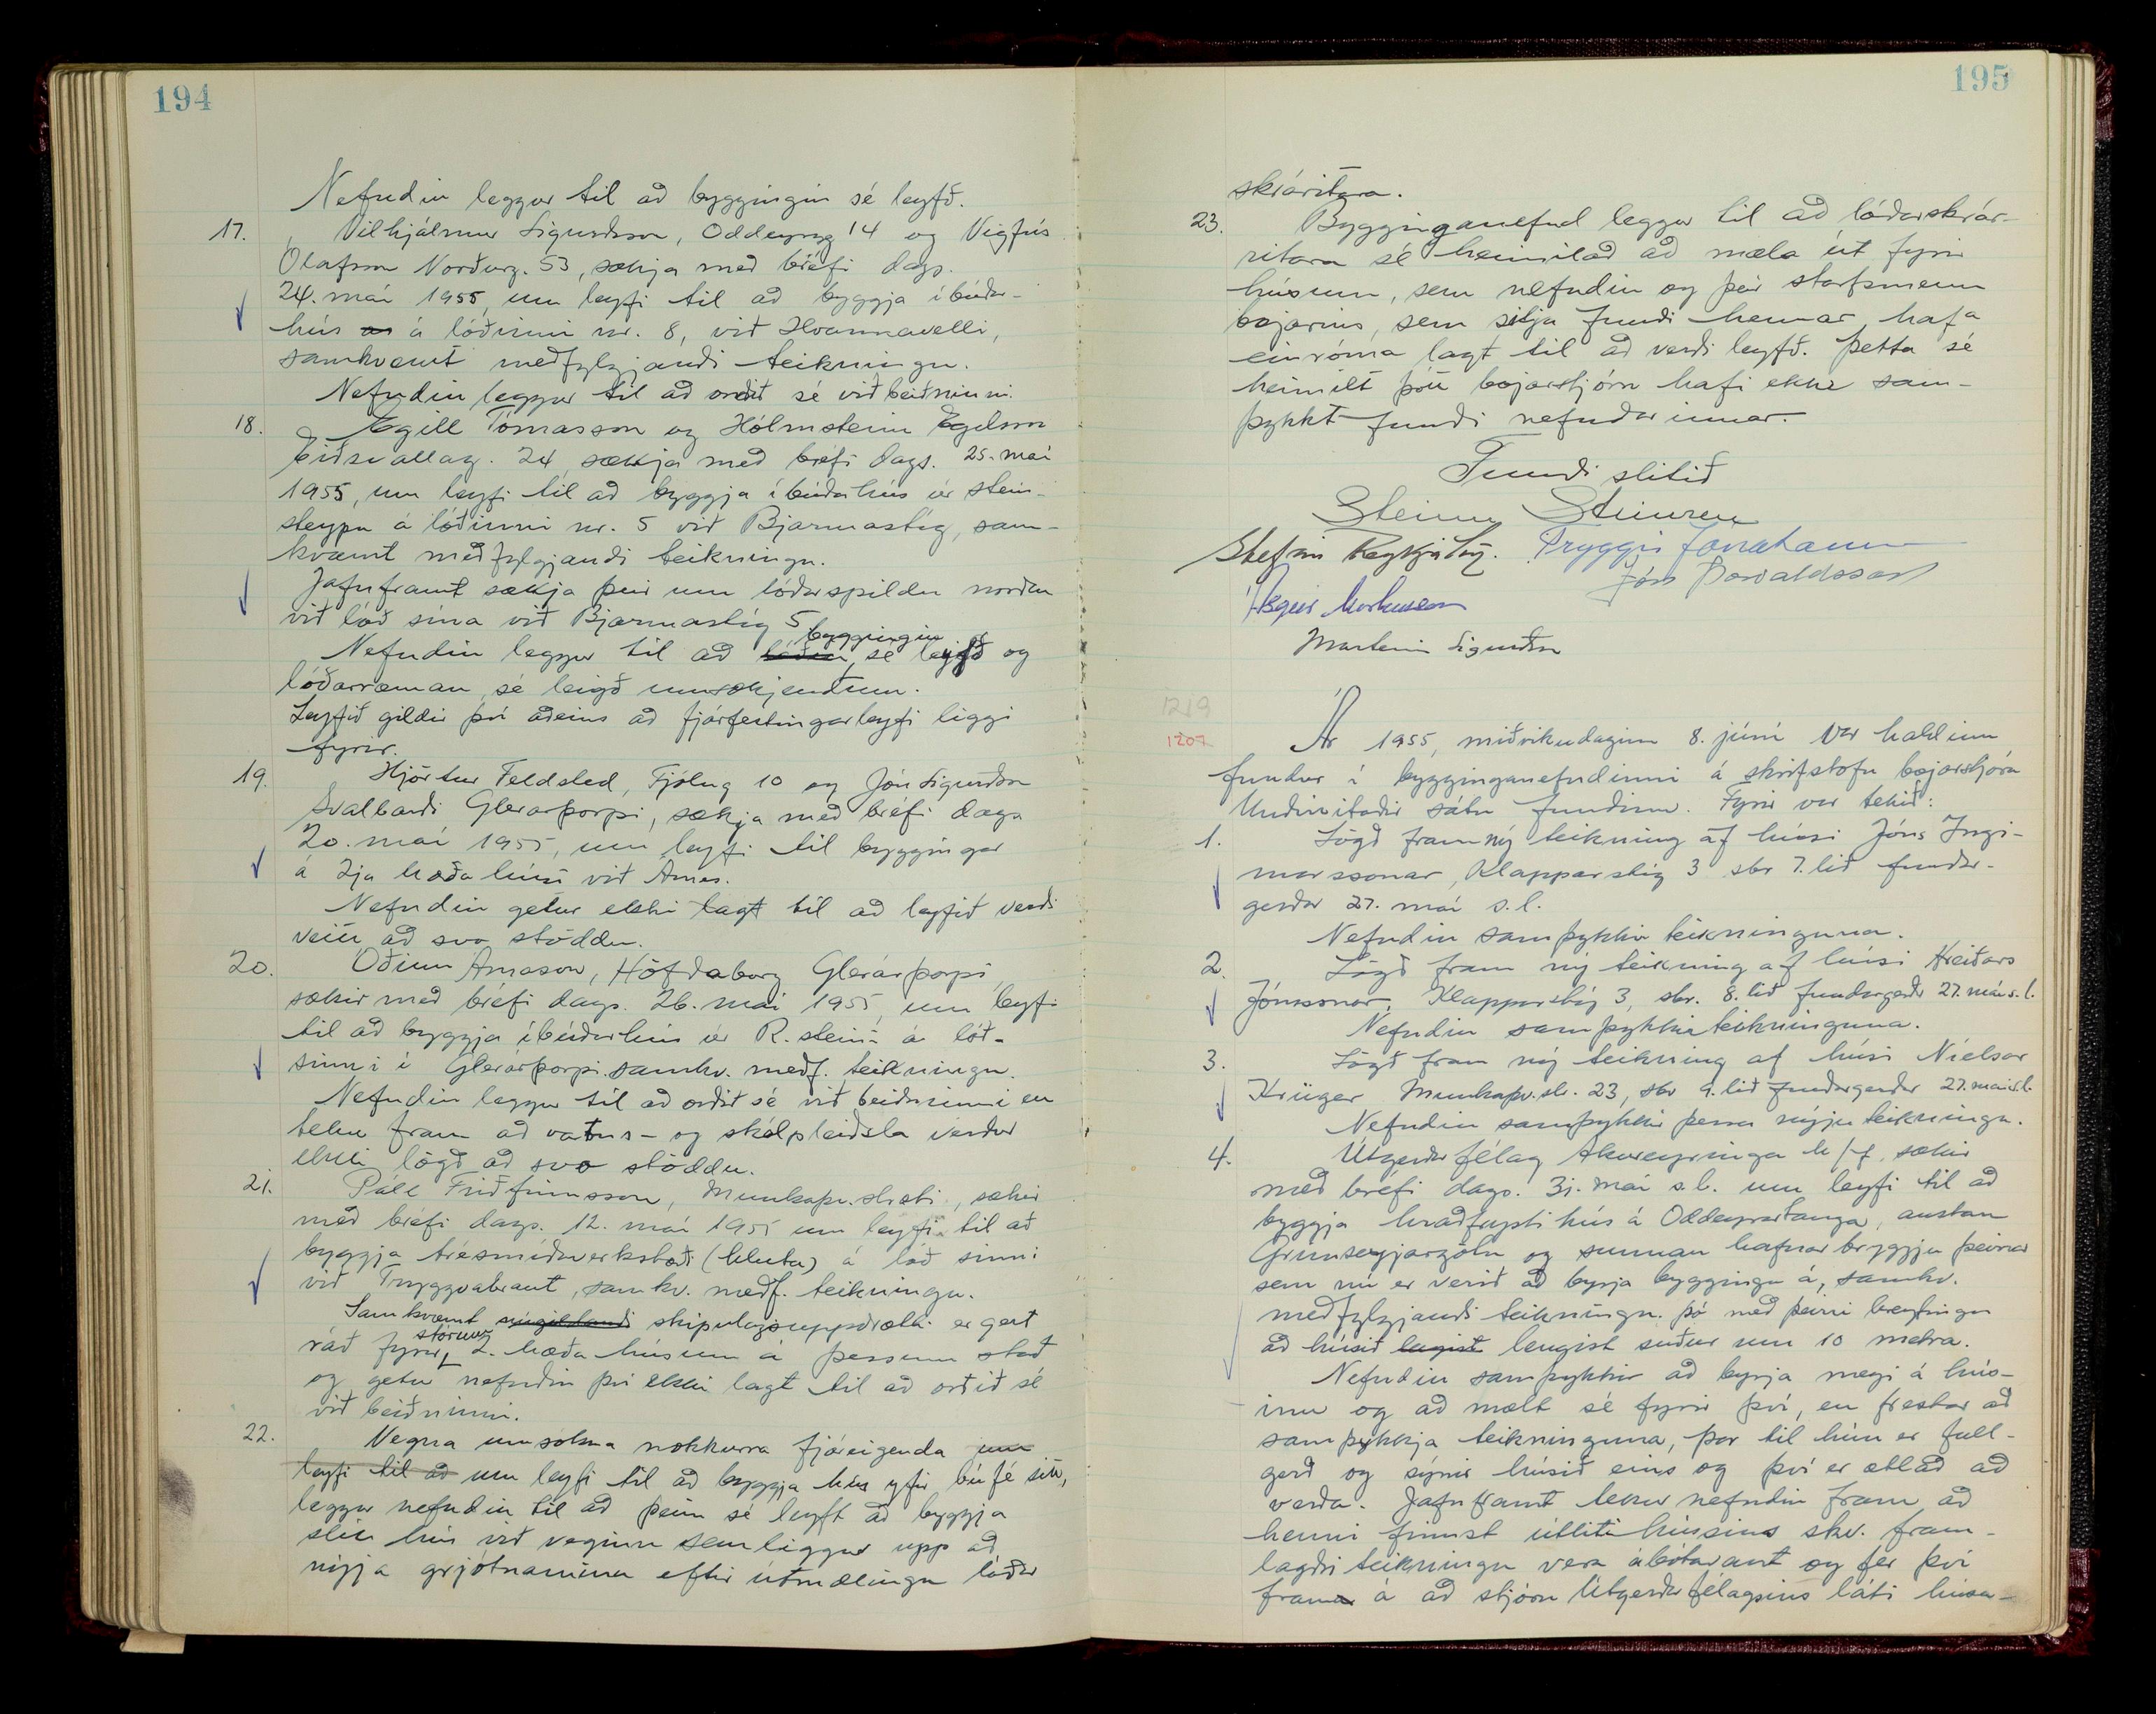 194
Nefndin leggur til að byggingin sé leyfð.
17. Vilhjálmur Sigurðsson, Oddeyrarg 14 og Vigfús
Ólafsson Norðurg. 53, sækja með bréfi dags.
24. maí 1955, um leyfi til að byggja íbúðar-
hús á lóðinni nr. 8, við Hvannavelli,
samkvæmt meðfylgjandi teikningu.
Nefndin leggur til að orðið sé við beiðninni.
18. Egill Tómasson og Hólmsteinn Egilsson
Eiðsvallag. 24, sækja með bréfi dags. 25. maí
1955, um leyfi til að byggja íbúðarhús úr stein-
steypu á lóðinni nr. 5 við Bjarmastíg, sam-
kvæmt meðfylgjandi teikningu.
Jafnframt sækja þeir um lóðarspildu norðan
við lóð sína við Bjarmastíg 5
Nefndin leggur til að lóðin byggingin sé leyfð og
lóðarræman sé leigð umsækjendum.
Leyfið gildir því aðeins að fjárfestingarleyfi liggi
fyrir.
19. Hjörtur Feldsted, Fjólug 10 og Jón Sigurðsson
Svalbarði Glerárþorpi, sækja með bréfi dags
20. maí 1955, um leyfi til byggingar
á 2ja hæða húsi við Ásveg.
Nefndin getur ekki lagt til að leyfið verði
veitt að svo stöddu.
20. Óðinn Árnason, Höfðaborg Glerárþorpi,
sækir með bréfi dags. 26. maí 1955, um leyfi
til að byggja íbúðarhús úr R. steini á lóð
sinni í Glerárþorpi. samkv. meðf. teikningu.
Nefndin leggur til að orðið sé við beiðninni en
tekur fram að vatns- og skólpleiðsla verður
ekki lögð að svo stöddu.
21. Páll Friðfinnsson, Munkaþv.stræti, sækir
með bréfi dags. 12. maí 1955 um leyfi til að
byggja trésmíðaverkstæði (hluta) á lóð sinni
við Tryggvabraut, samkv. meðf. teikningu.
Samkvæmt núgildandi skipulagsuppdrætti er gert
ráð fyrir stórum 2. hæða húsum á þessum stað
og getur nefndin því ekki lagt til að orðið sé
við beiðninni.
22. Vegna umsókna nokkurra fjáreigenda um
leyfi til að um leyfi til að byggja hús yfir búfé sitt,
leggur nefndin til að þeim sé leyft að byggja
slík hús við veginn sem liggur upp að
nýja grjótnáminu eftir útmælingu lóðar
195
skráritara.
23. Bygginganefnd leggur til að lóðarskrár-
ritara sé heimilað að mæla út fyrir
húsum, sem nefndin og þeir starfsmenn
bæjarins, sem sitja fundi hennar, hafa
einróma lagt til að verði leyfð. Þetta sé
heimilt þótt bæjarstjórn hafi ekki sam-
þykkt fundi nefndarinnar.
Fundi slitið
Steinn Steinsen
Stefán Reykjalín. Tryggvi Jónatansson
Jón Þorvaldsson
Ásgeir Markússon
Marteinn Sigurðsson
1219
1207
Ár 1955, miðvikudaginn 8. júní var haldinn
fundur í bygginganefndinni á skrifstofu bæjarstjóra
Undirritaðir sátu fundinn. Fyrir var tekið:
1. Lögð fram ný teikning af húsi Jóns Ingi-
marssonar, Klapparstíg 3 sbr 7. lið fundar-
gerðar 27. maí s.l.
Nefndin samþykkir teikninguna.
2. Lögð fram ný teikning af húsi Hreiðars
Jónssonar, Klapparstíg 3, sbr. 8. lið fundargerðr 27. maí s.l.
Nefndin samþykkir teikninguna.
3. Lögð fram ný teikning af húsi Níelsar
Krüger Munkaþv.str. 23, sbr 9. lið fundargerðar 27. maí s.l.
Nefndin samþykkir þessa nýju teikningu.
4. Útgerðarfélag Akureyringa h/f, sækir
með bréfi dags. 31. maí s.l. um leyfi til að
byggja hraðfrystihús á Oddeyrartanga, austan
Grímseyjargötu og sunnan hafnarbryggju þeirrar
sem nú er verið að byrja byggingu á, samkv.
meðfylgjandi teikningu. þó með þeirri breytingu
að húsið lengist lengist suður um 10 metra.
Nefndin samþykkir að byrja megi á hús-
inu og að mælt sé fyrir því, en frestar að
samþykkja teikninguna, þar til hún er full-
gerð og sýnir húsið eins og því er ætlað að
verða. Jafnframt tekur nefndin fram að
henni finnst útlit hússins skv. fram-
lagðri teikningu vera ábótavant og fer því
fram á að stjórn Útgerðarfélagsins láti húsa-